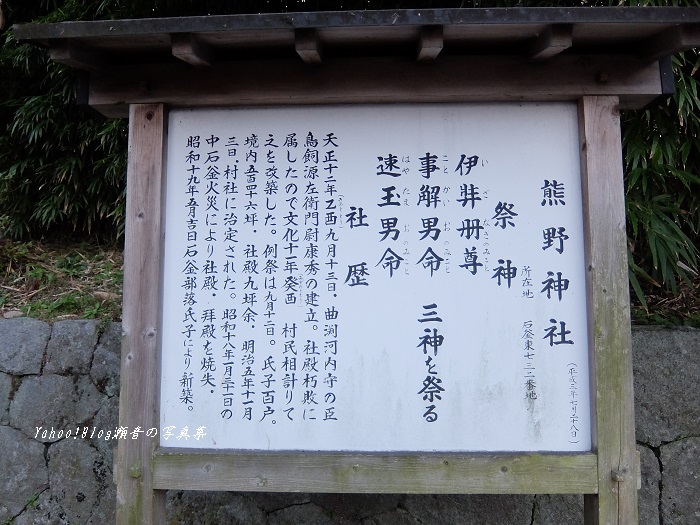 熊野神社
(平成二年七月二十八日)
所在地 石釜東七三二番地
祭神
伊弉册尊
いざなぎのみこと
事解男命 三神を祭る
ことかいおのみこと
速玉男命
はやたまおのみこと
社歴
天正十二年乙酉九月十三日、曲渕河内守の臣
鳥飼源左衛門尉康秀の建立。社殿朽敗に
属したので文化十一年癸酉 村民相計りて
之を改築した。例祭は九月十二日。氏子百戸。
境内五百四十六坪、社殿九坪余、明治五年十一月
三日、村社に治定された。昭和十八年二月二十一日の
中石釜火災により社殿、拝殿を焼失、
昭和十九年五月吉日石釜部落氏子により新築。
Yahoo!Blog瀬音の写真集